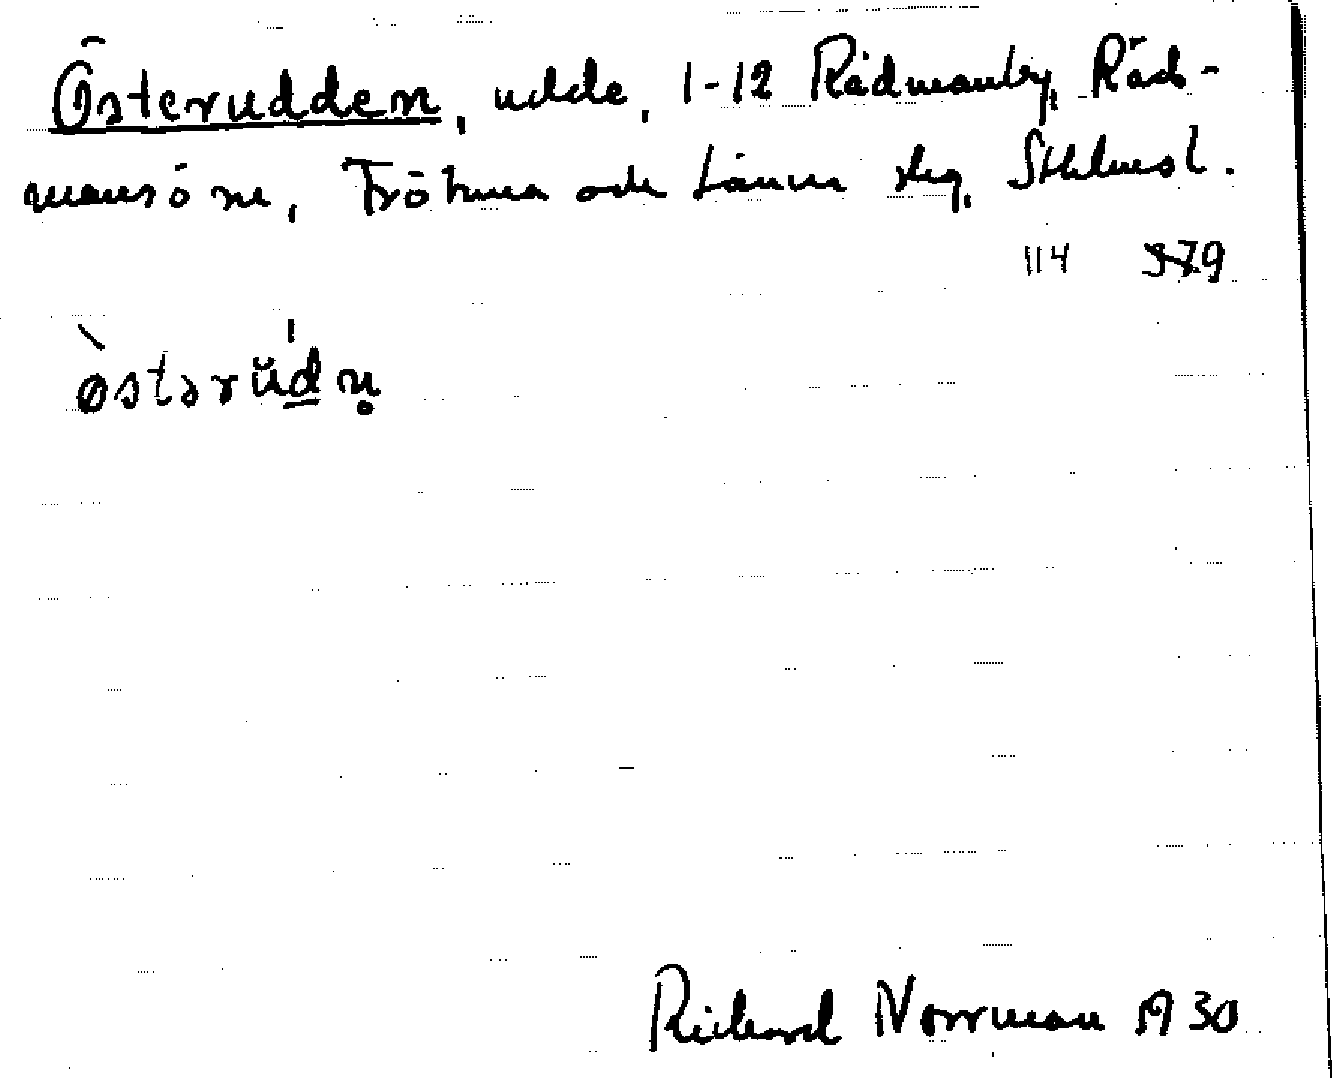 Österudden, udde, 1-12 Rådmanby, Råd-
mansö sn, Frötuna och Länna slg, Sthlmsl.
114 979
òstərŭdn̥
Richard Norrman 1930